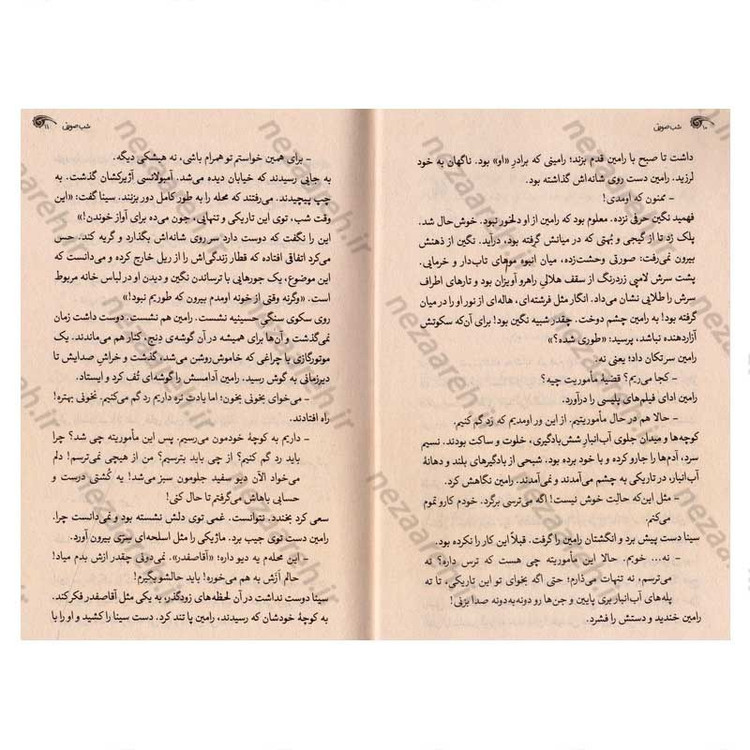 ۱۰ شب صورتی
داشت تا صبح با رامین قدم بزند؛ رامینی که برادرِ «او» بود. ناگهان به خود
لرزید. رامین دست روی شانه‌اش گذاشته بود.
- ممنون که اومدی!
فهمید نگین حرفی نزده. معلوم بود که رامین از او دلخور نبود. خوش‌حال شد.
پلک زد تا از گیجی و بُهتی که در میانش گرفته بود، درآید. نگین از ذهنش
بیرون نمی‌رفت: صورتی وحشت‌زده، میان انبوه موهای تاب‌دار و خرمایی،
پشت سرش لامپی زردرنگ از سقف هلالیِ راهرو آویزان بود و تارهای اطراف
سرش را طلایی نشان می‌داد. انگار مثل فرشته‌ای، هاله‌ای از نور او را در میان
گرفته بود! به رامین چشم دوخت. چقدر شبیه نگین بود! برای آن‌که سکوتش
آزاردهنده نباشد، پرسید: «طوری شده؟»
رامین سرتکان داد؛ یعنی نه.
- کجا می‌ریم؟ قضیهٔ مأموریت چیه؟
رامین ادای فیلم‌های پلیسی را درآورد.
- حالا هم در حال مأموریتیم. از این ور اومدیم که رَد گم کنیم.
کوچه‌ها و میدان جلوی آب‌انبارِ شش‌بادگیری، خلوت و ساکت بودند. نسیم
سرد، آدم‌ها را جارو کرده و با خود برده بود، شبحی از بادگیرهای بلند و دهانهٔ
آب‌انبار، در تاریکی به چشم می‌آمدند و نمی‌آمدند. رامین نگاهش کرد.
- مثل این‌که حالت خوش نیست! اگه می‌ترسی برگرد. خودم کارو تموم
می‌کنم.
سینا دست پیش برد و انگشتان رامین را گرفت. قبلاً این کار را نکرده بود.
- نه... خوبم. حالا این مأموریته چی هست که ترس داره؟ نه
می‌ترسم، نه تنهات می‌ذارم؛ حتی اگه بخوای تو این تاریکی، تا ته
پله‌های آب‌انبار بری پایین و جن‌ها رو دونه‌به‌دونه صدا بزنی!
رامین خندید و دستش را فشرد.
شب صورتی ۱۱
- برای همین خواستم تو همرام باشی، نه هیشکی دیگه.
به جایی رسیدند که خیابان دیده می‌شد. آمبولانسی آژیرکشان گذشت. به
چپ پیچیدند. می‌رفتند که محله را به طور کامل دور بزنند. سینا گفت: «این
وقت شب، توی این تاریکی و تنهایی، جون می‌ده برای آواز خوندن!»
این را نگفت که دوست دارد سر روی شانه‌اش بگذارد و گریه کند. حس
می‌کرد اتفاقی افتاده که قطار زندگی‌اش را از ریل خارج کرده و می‌دانست که
این موضوع، یک جورهایی با ترساندن نگین و دیدن او در لباس خانه مربوط
است. «وگرنه وقتی از خونه اومدم بیرون که طوریم نبود!»
روی سکوی سنگی حسینیه نشست. رامین هم نشست. دوست داشت زمان
نمی‌گذشت و آن‌ها برای همیشه در آن گوشه‌ی دِنج، کنار هم می‌ماندند. یک
موتورگازی با چراغی که خاموش‌روشن می‌شد، گذشت و خراشِ صدایش تا
دیرزمانی به گوش رسید. رامین آدامسش را گوشه‌ای تُف کرد و ایستاد.
- می‌خوای بخونی بخون؛ اما یادت نره داریم رد گم می‌کنیم. نخونی بهتره!
راه افتادند.
- داریم به کوچهٔ خودمون می‌رسیم. پس این مأموریته چی شد؟ چرا
باید رد گم کنیم؟ از چی باید بترسیم؟ من از هیچی نمی‌ترسم! دلم
می‌خواد الآن دیو سفید جلومون سبز می‌شد! یه کُشتی درست و
حسابی باهاش می‌گرفتم تا حال کنی!
سعی کرد بخندد. نتوانست. غمی توی دلش نشسته بود و نمی‌دانست چرا.
رامین دست توی جیب برد. ماژیکی را مثل اسلحه‌ای سرّی بیرون آورد.
- این محله‌م یه دیو داره؛ «آقاصفدر». نمی‌دونی چقدر ازش بدم میاد!
حالم ازش به هم می‌خوره! باید حالشو بگیرم!
سینا دوست نداشت در آن لحظه‌های زودگذر، به یکی مثل آقاصفدر فکر کند.
به کوچهٔ خودشان که رسیدند، رامین پا تند کرد. دست سینا را کشید و او را با
nezaareh.ir